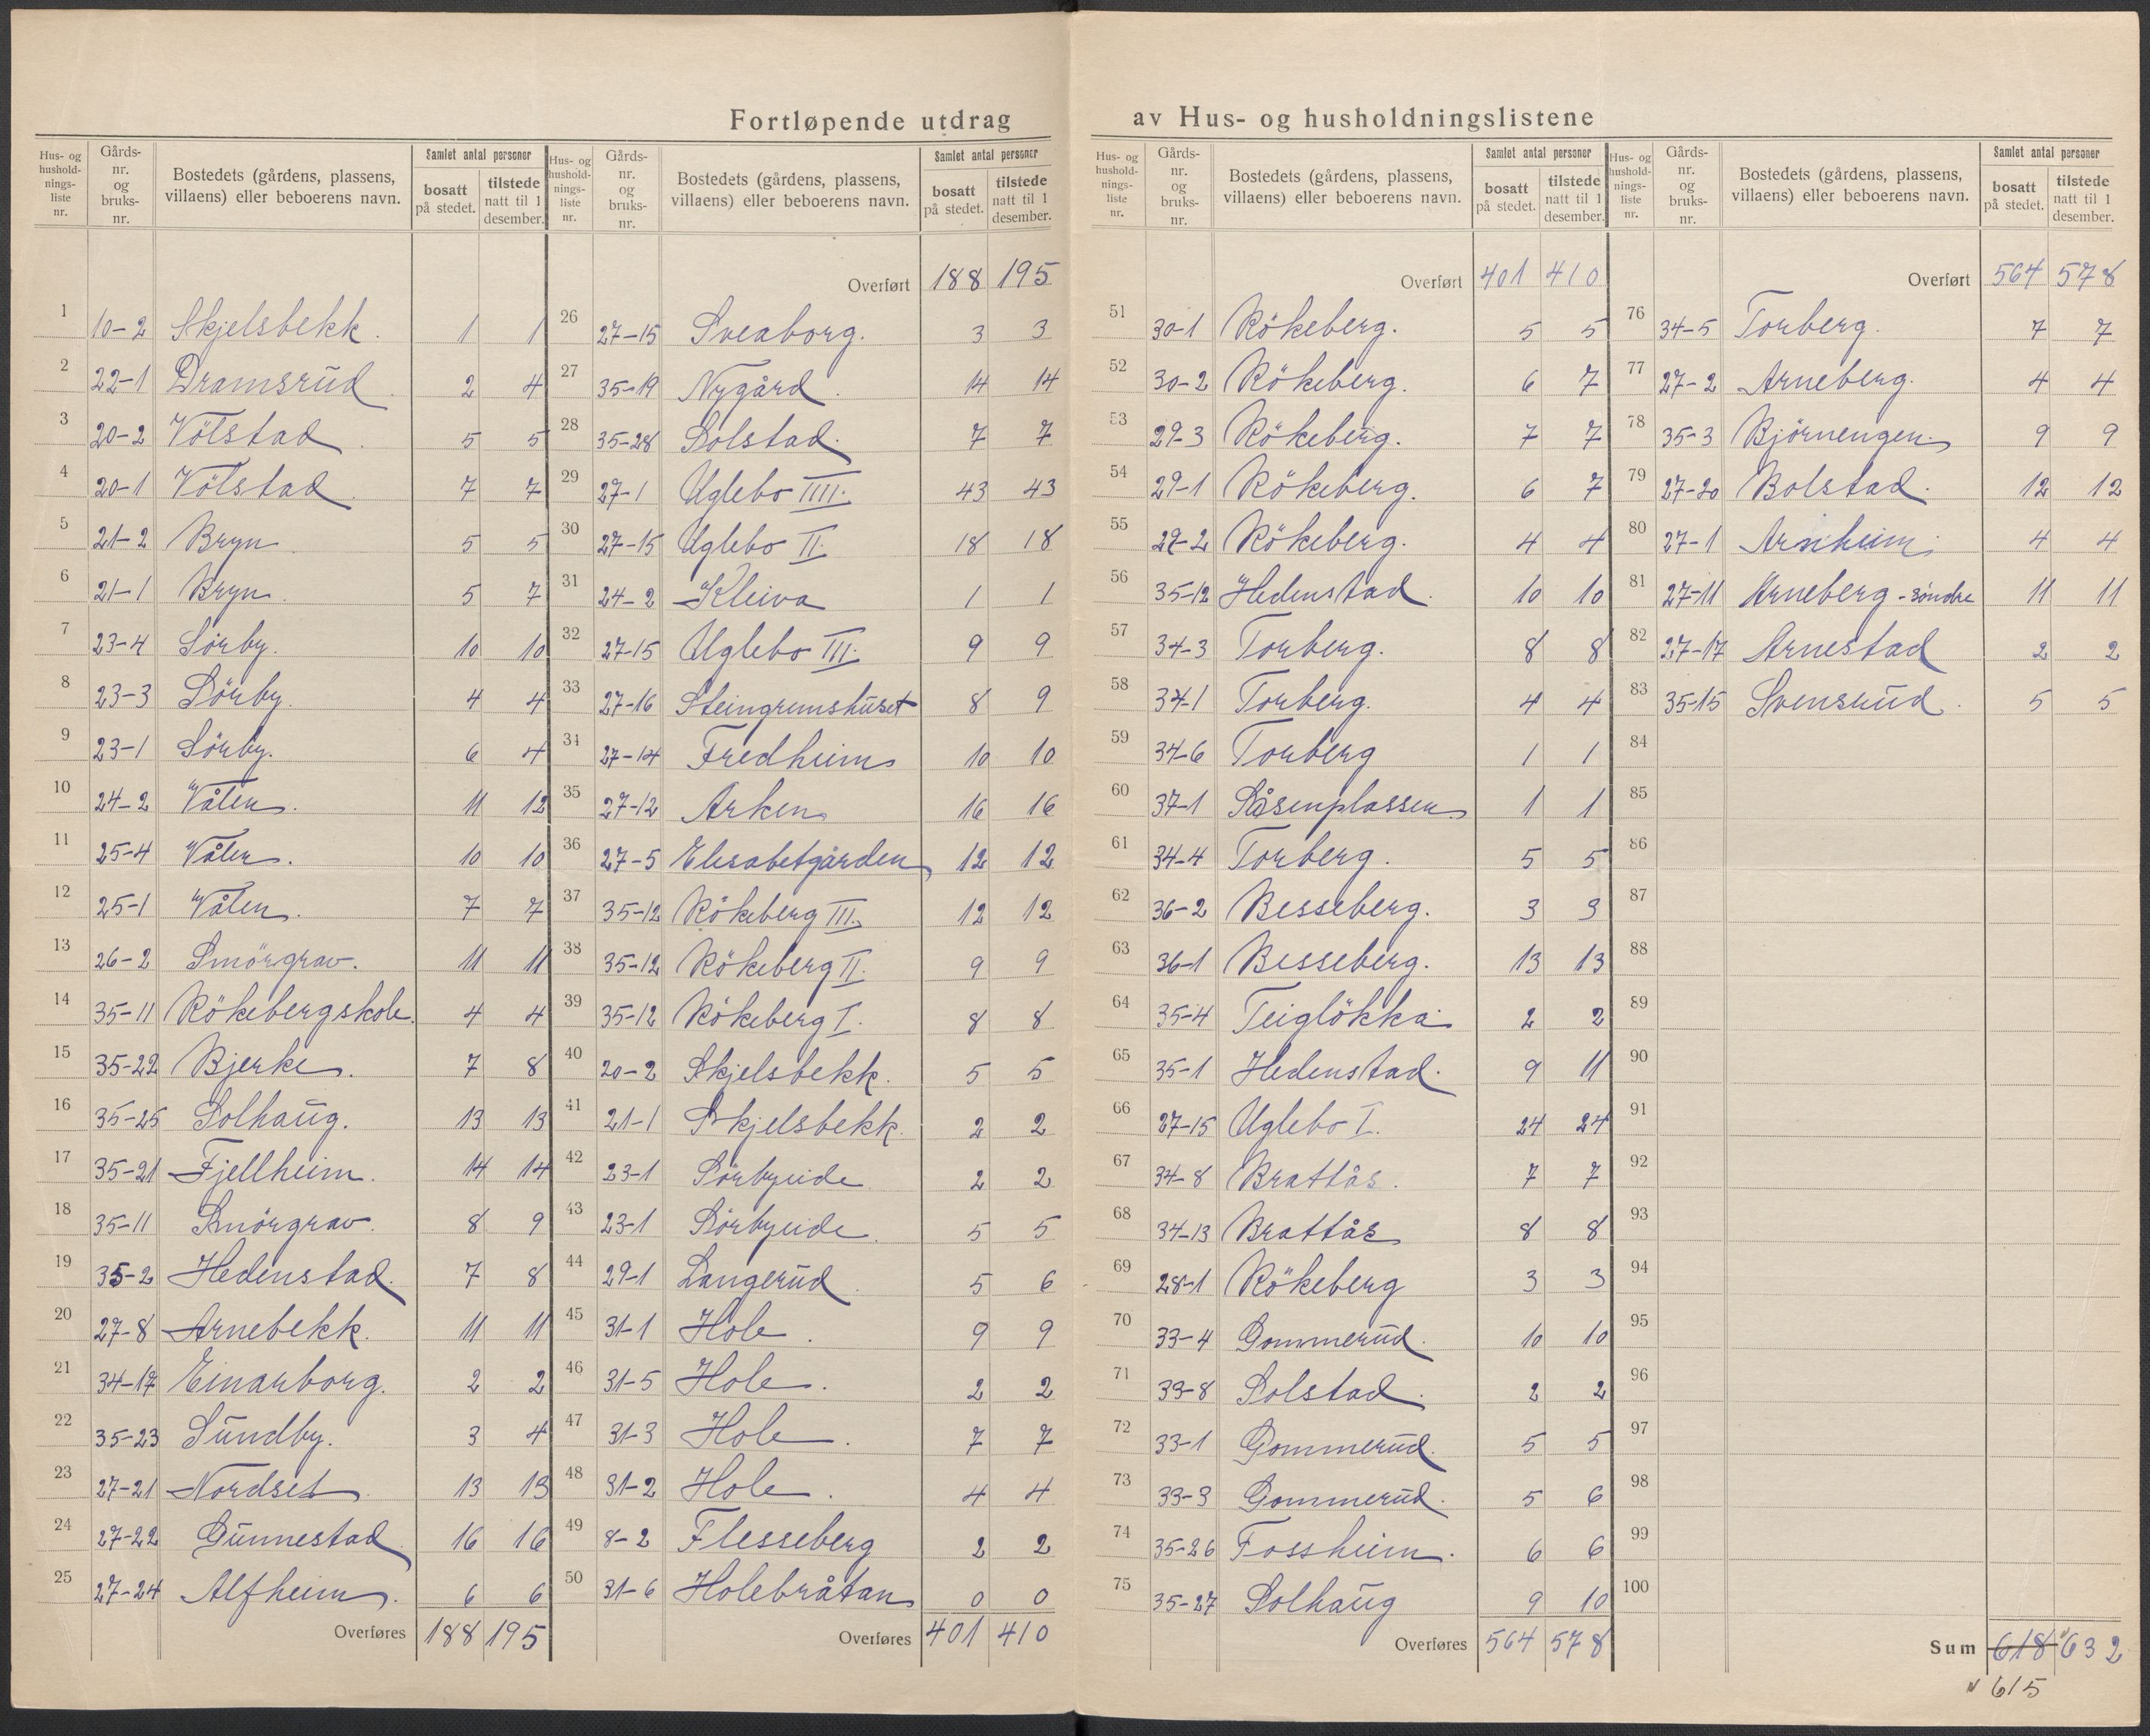 Fortløpende utdrag av Hus- og husholdningslistene
Hus- og hushold-nings-liste nr. Gårds-nr. og bruks-nr. Bostedets (gårdens, plassens, villaens) eller beboerens navn. Samlet antal personer bosatt på stedet. tilstede natt til 1 desember.
1 10-2 Skjelsbekk. 1 1
2 22-1 Dramsrud. 2 4
3 20-2 Völstad. 5 5
4 20-1 Völstad. 7 7
5 21-2 Bryn. 5 5
6 21-1 Bryn. 5 7
7 23-4 Sörby. 10 10
8 23-3 Sörby. 4 4
9 23-1 Sörby. 6 4
10 24-2 Vålen. 11 12
11 25-4 Vålen. 10 10
12 25-1 Vålen. 7 7
13 26-2 Smörgrav. 11 11
14 35-11 Rökebergskole. 4 4
15 35-22 Bjerke. 7 8
16 35-25 Solhaug. 13 13
17 35-21 Fjellheim. 14 14
18 35-11 Smörgrav. 8 9
19 35-2 Hedenstad. 7 8
20 27-8 Arnebekk. 11 11
21 34-17 Einarborg. 2 2
22 35-23 Sundby. 3 4
23 27-21 Nordset 13 13
24 27-22 Gunnestad 16 16
25 27-24 Alfheim. 6 6
Overføres 188 195
Hus- og hushold-nings-liste nr. Gårds-nr. og bruks-nr. Bostedets (gårdens, plassens, villaens) eller beboerens navn. Samlet antal personer bosatt på stedet. tilstede natt til 1 desember.
Overført 188 195
26 27-15 Sveaborg. 3 3
27 35-19 Nygård. 14 14
28 35-28 Solstad. 7 7
29 27-1 Uglebo IIII. 43 43
30 27-15 Uglebo II. 18 18
31 24-2 Kleiva 1 1
32 27-15 Uglebo III. 9 9
33 27-16 Steingrumshuset 8 9
34 27-14 Fredheim 10 10
35 27-12 Arken 16 16
36 27-5 Elisabetgården 12 12
37 35-12 Rökeberg III. 12 12
38 35-12 Rökeberg II. 9 9
39 35-12 Rökeberg I. 8 8
40 20-2 Skjelsbekk. 5 5
41 21-1 Skjelsbekk. 2 2
42 23-1 Sörbyeide 2 2
43 23-1 Sörbyeide. 5 5
44 29-1 Langerud. 5 6
45 31-1 Hole. 9 9
46 31-5 Hole. 2 2
47 31-3 Hole. 7 7
48 31-2 Hole. 4 4
49 8-2 Flesseberg 2 2
50 31-6 Holebråtan 0 0
Overføres 401 410
Hus- og hushold-nings-liste nr. Gårds-nr. og bruks-nr. Bostedets (gårdens, plassens, villaens) eller beboerens navn. Samlet antal personer bosatt på stedet. tilstede natt til 1 desember.
Overført 401 410
51 30-1 Rökeberg. 5 5
52 30-2 Rökeberg. 6 7
53 29-3 Rökeberg. 7 7
54 29-1 Rökeberg. 6 7
55 29-2 Rökeberg. 4 4
56 35-12 Hedenstad. 10 10
57 34-3 Torberg. 8 8
58 34-1 Torberg. 4 4
59 34-6 Torberg 1 1
60 37-1 Såsenplassen 1 1
61 34-4 Torberg. 5 5
62 36-2 Besseberg. 3 3
63 36-1 Besseberg. 13 13
64 35-4 Teiglökka 2 2
65 35-1 Hedenstad. 9 11
66 27-15 Uglebo I. 24 24
67 34-8 Brattås. 7 7
68 34-13 Brattås 8 8
69 28-1 Rökeberg 3 3
70 33-4 Gommerud. 10 10
71 33-8 Solstad. 2 2
72 33-1 Gommerud. 5 5
73 33-3 Gommerud. 5 6
74 35-26 Fossheim. 6 6
75 35-27 Solhaug 9 10
Overføres 564 578
Hus- og hushold-nings-liste nr. Gårds-nr. og bruks-nr. Bostedets (gårdens, plassens, villaens) eller beboerens navn. Samlet antal personer bosatt på stedet. tilstede natt til 1 desember.
Overført 564 578
76 34-5 Torberg. 7 7
77 27-2 Arneberg. 4 4
78 35-3 Björnengen. 9 9
79 27-20 Bolstad. 12 12
80 27-1 Arnheim. 4 4
81 27-11 Arneberg - söndre 11 11
82 27-17 Arnestad 2 2
83 35-15 Svensrud. 5 5
84
85
86
87
88
89
90
91
92
93
94
95
96
97
98
99
100
Sum 618 632
615